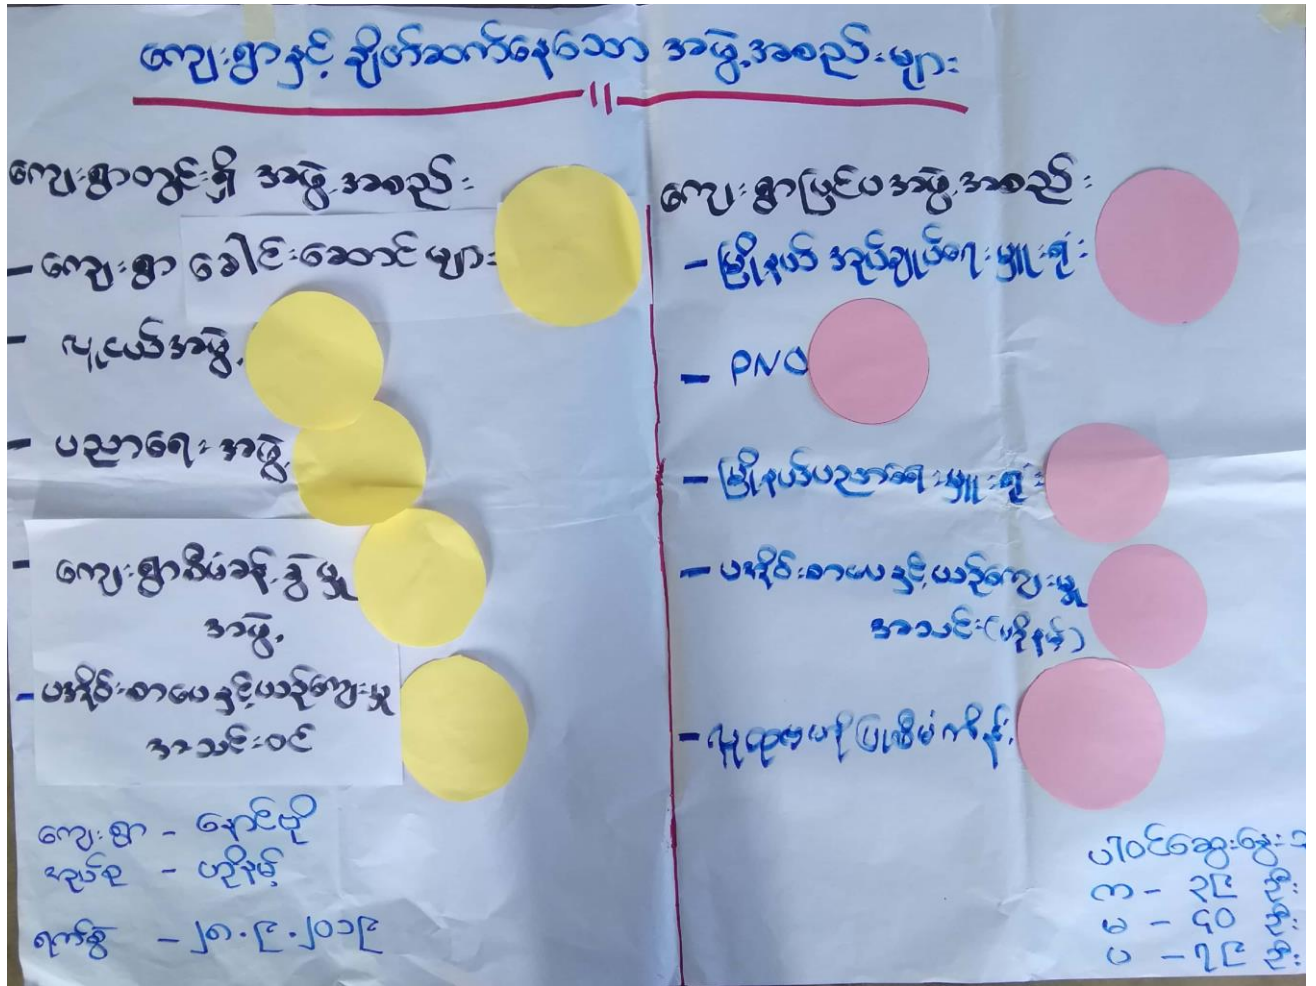 ကျေးရွာနှင့် ချိတ်ဆက်နေသော အဖွဲ့အစည်းများ
ကျေးရွာတွင်းရှိ အဖွဲ့အစည်း
- ကျေးရွာ ခေါင်းဆောင်များ
- လူငယ်အဖွဲ့
- ပညာရေးအဖွဲ့
- ကျေးရွာစီမံခန့်ခွဲမှု
အဖွဲ့
- ပအိုဝ်းစာပေနှင့်ယဉ်ကျေးမှု
အသင်းဝင်
ကျေးရွာ - နောင်ဗို
အုပ်စု - ဟိုနမ့်
ရက်စွဲ - ၂၈.၉.၂၀၁၉
ကျေးရွာပြင်ပအဖွဲ့အစည်း
- မြို့နယ် အုပ်ချုပ်ရေးမှူးရုံး
- PNO
- မြို့နယ်ပညာရေးမှူးရုံး
- ပအိုဝ်းစာပေနှင့်ယဉ်ကျေးမှု
အသင်း(ဟိုနမ့်)
- လူထုဗဟိုပြုစီမံကိန်း
ပါဝင်ဆွေးနွေးသ
က - ၃၉ ဦး
မ - ၄၀ ဦး
ပ - ၇၉ ဦး